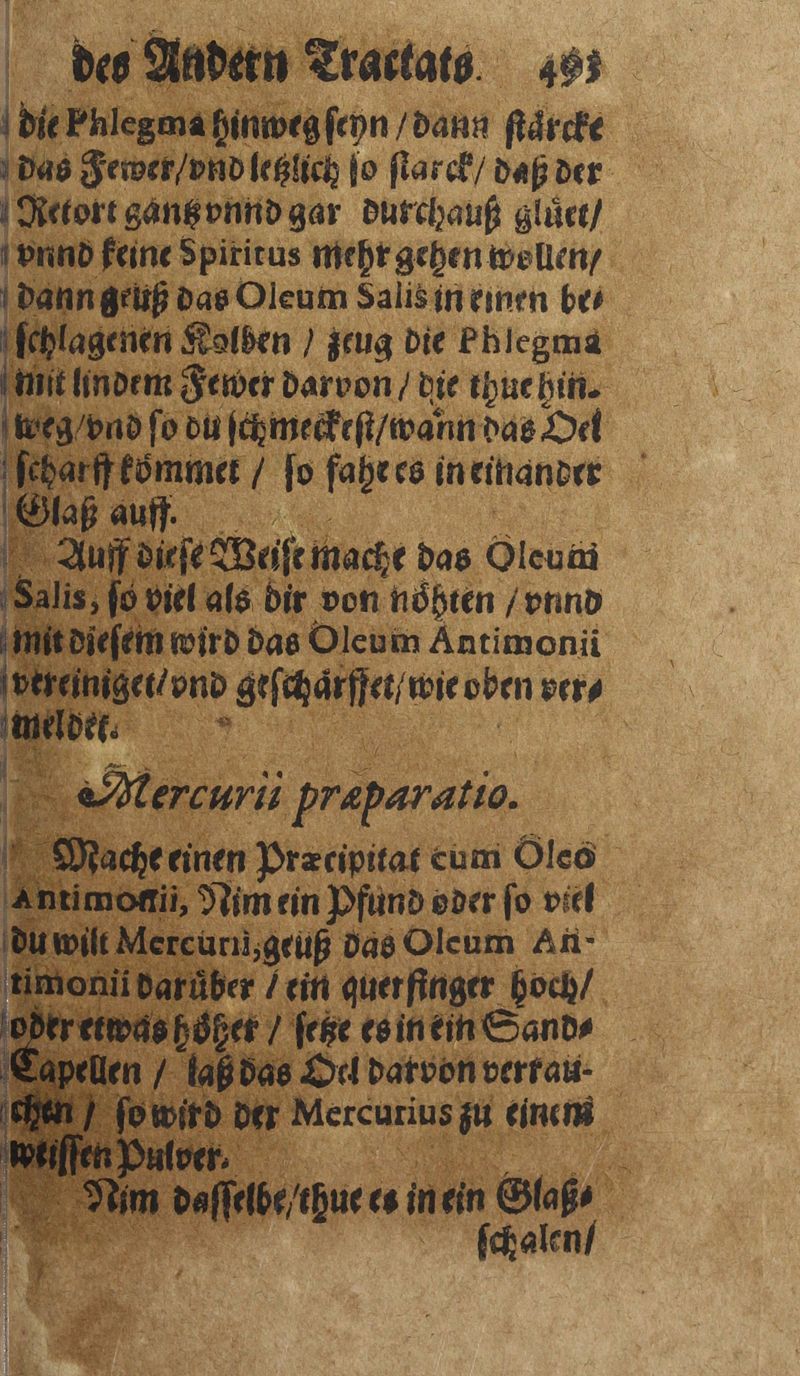 des Andern Tractats. 493
die Phlegma hinweg seyn / dann stärcke
das Fewer/vnd letzlich so starck/ daß der
Retort gantz vnnd gar durchauß glüet/
vnnd keine Spiritus mehr gehen wollen/
dann geuß das Oleum Salis in einen be-
schlagenen Kolben / zeug die Phlegma
mit lindem Fewer darvon / die thue hin-
weg/vnd so du schmeckest/wann das Oel
scharff kömmet / so fahe es in ein ander
Glaß auff.
Auff diese Weise mache das Oleum
Salis, so viel als dir von nöhten / vnnd
mit diesem wird das Oleum Antimonii
vereiniget/vnd geschärffet/wie oben ver-
meldet.
Mercurii præparatio.
Mache einen Præcipitat cum Oleo
Antimonii, Nim ein Pfund oder so viel
du wilt Mercurii,geuß das Oleum An-
timonii darüber / ein querfinger hoch/
oder etwas höher / setze es in ein Sand-
Capellen / laß das Oel darvon verrau-
chen / so wird der Mercurius zu einem
weissen Pulver.
Nim dasselbe/thue es in ein Glaß-
schalen/